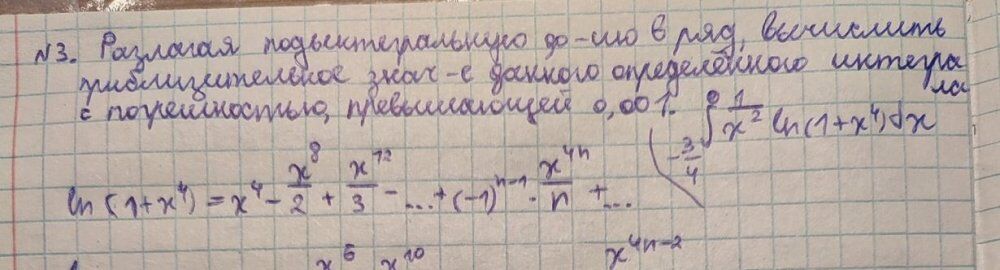 N3. Разлагая подынтегральную ф-цию в ряд, вычислить
приблизительное знач-е данного определённого интеграла
с погрешностью, превышающей 0,001. ∫_{-3/4}^{0} 1/x² ln(1+x⁴)dx
ln(1+x⁴) = x⁴ - x⁸/2 + x¹²/3 - ... + (-1)ⁿ⁻¹ · x⁴ⁿ/n + ...
x⁶ x¹⁰ x⁴ⁿ⁻²